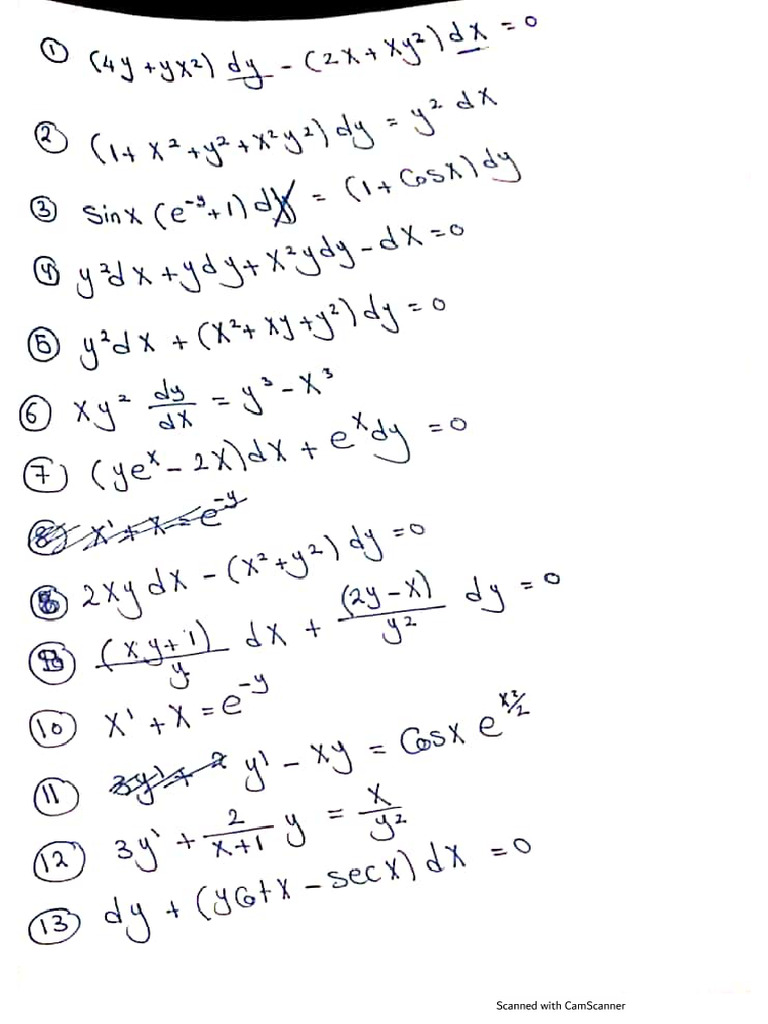 ① (4y + yx²) dy - (2x + xy²) dx = 0
② (1 + x² + y² + x²y²) dy = y² dx
③ sinx (e⁻ʸ + 1) dx = (1 + Cosx) dy
④ y²dx + ydy + x²ydy - dx = 0
⑤ y²dx + (x² + xy + y²) dy = 0
⑥ xy² dy/dx = y³ - x³
⑦ (yeˣ - 2x) dx + eˣdy = 0
⑧ x' + x = e⁻ʸ
2xy dx - (x² + y²) dy = 0
(xy + 1)/y dx + (2y - x)/y² dy = 0
⑩ x' + x = e⁻ʸ
⑪ y' - xy = Cosx e^(x²/2)
⑫ 3y' + 2/(x+1) y = x/y²
⑬ dy + (y Cotx - secx) dx = 0
Scanned with CamScanner